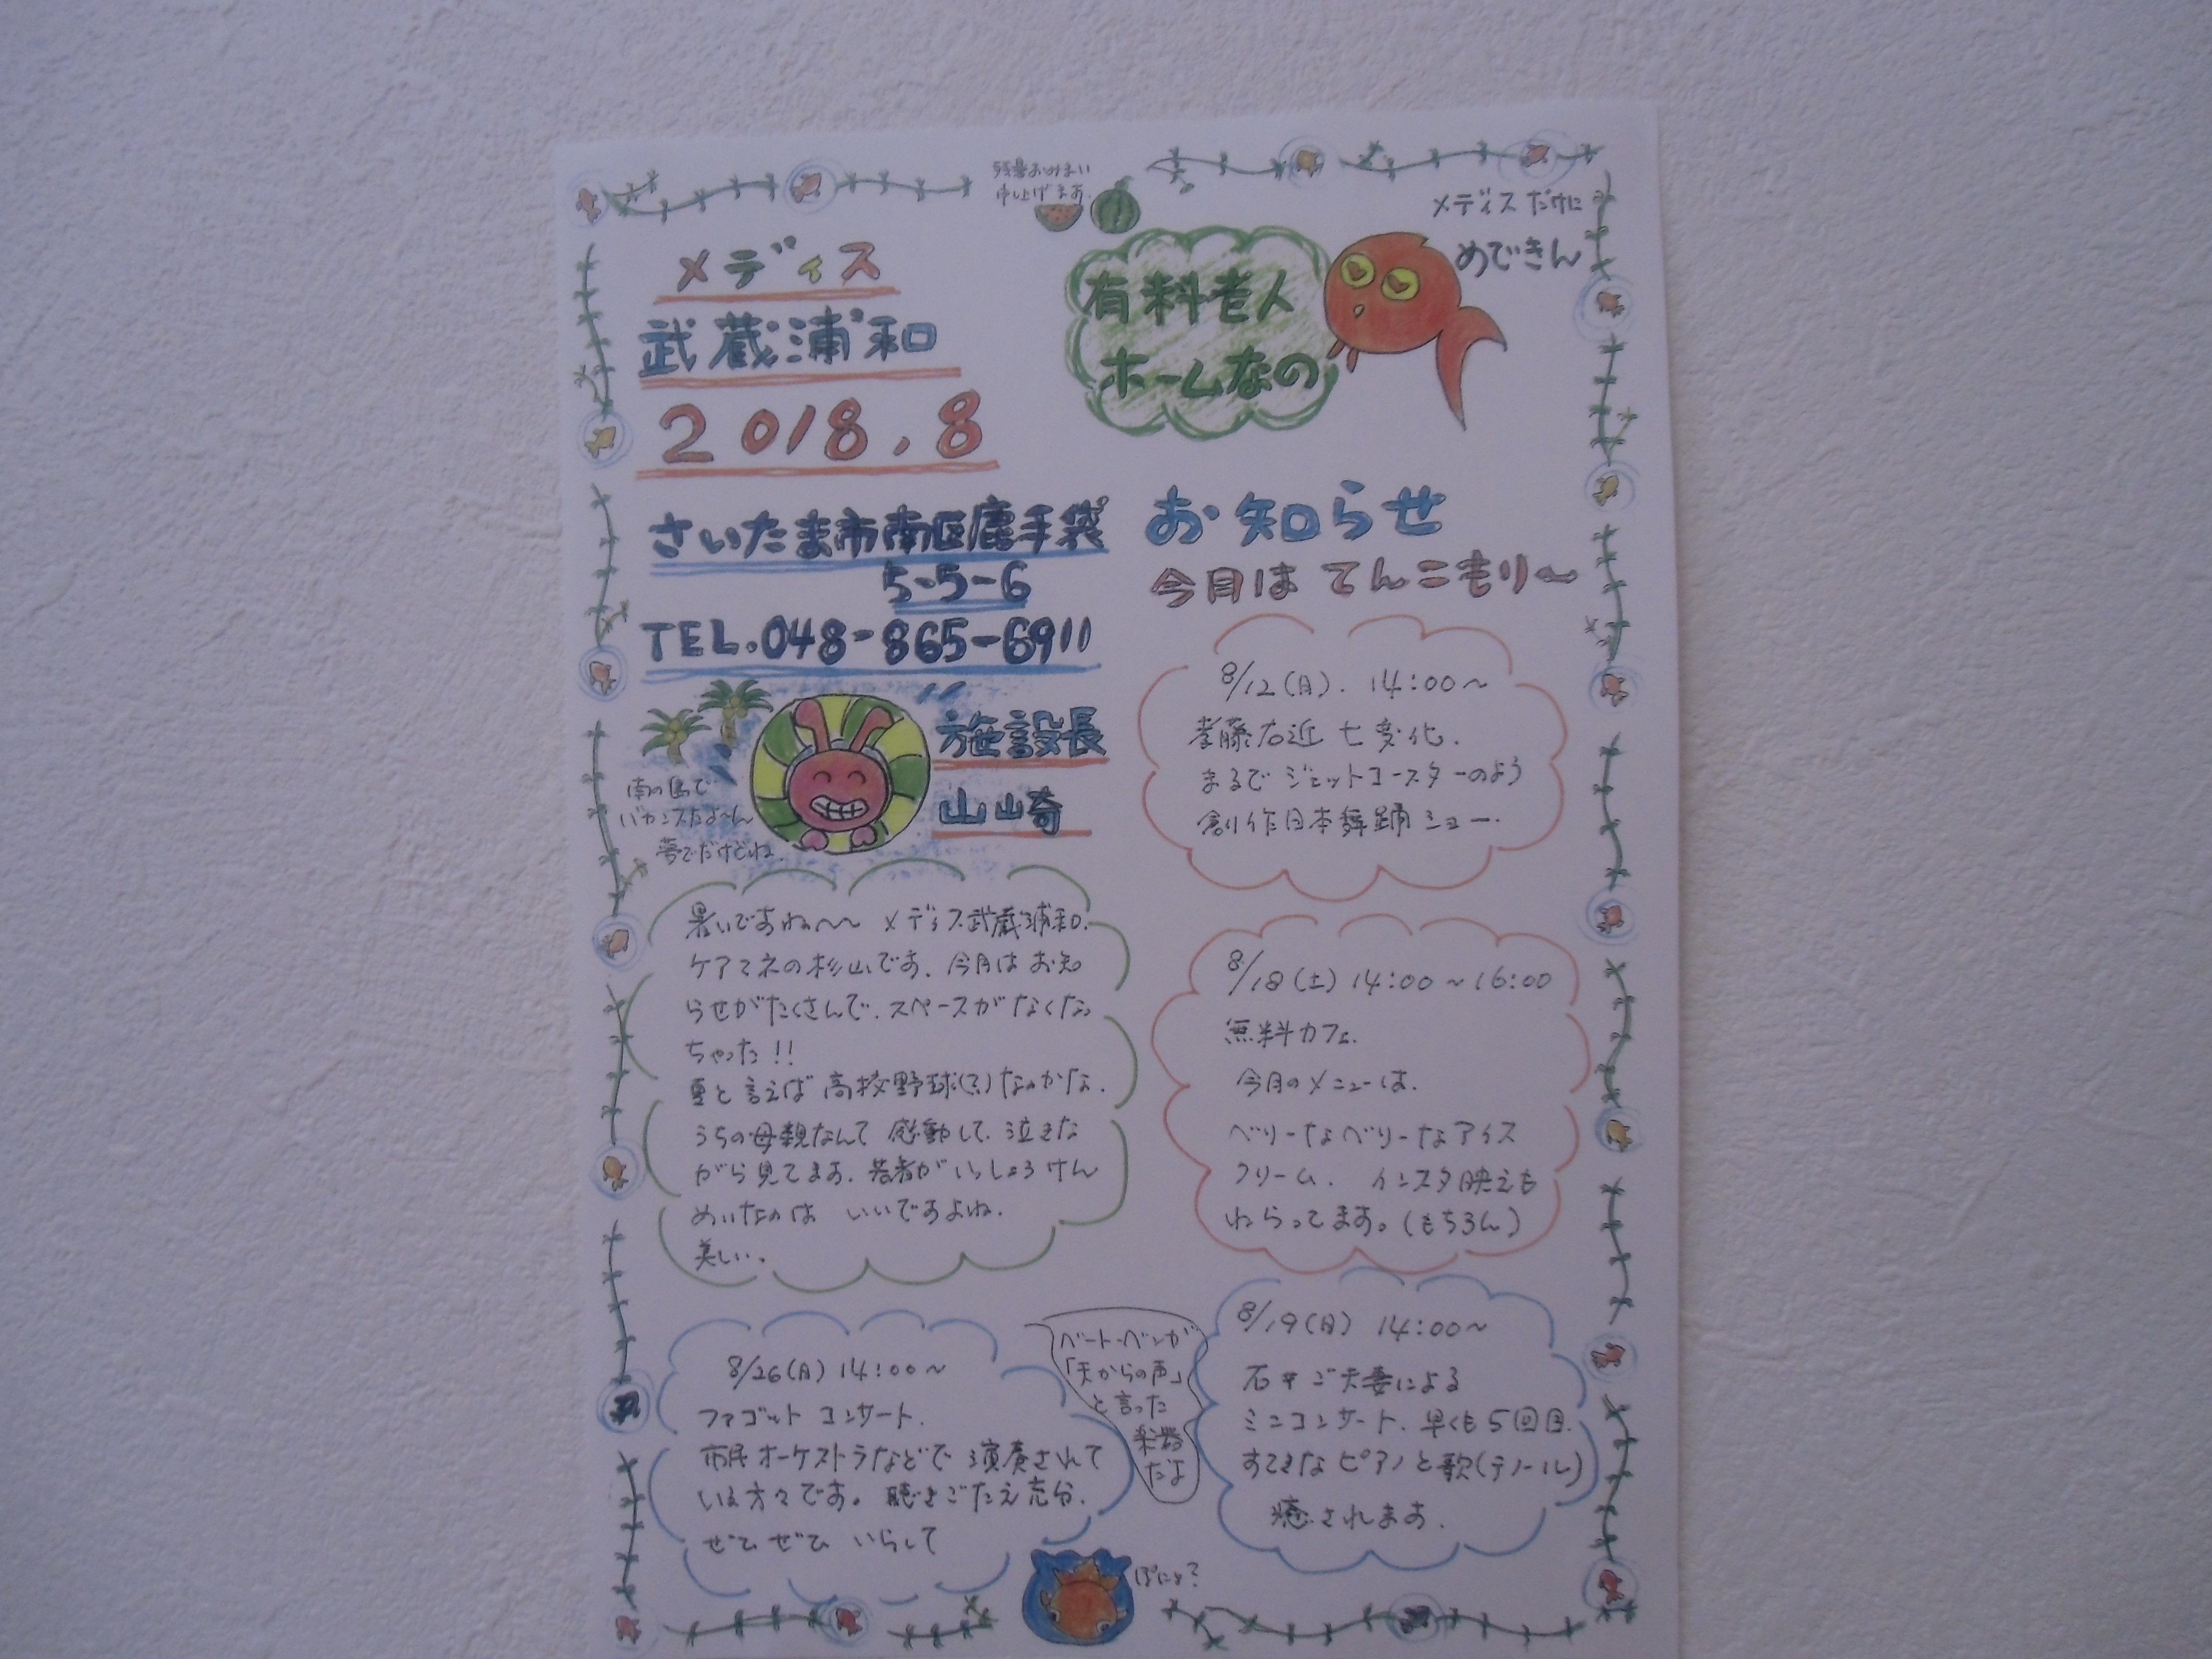 残暑おみまい
申し上げます。
メディス
武蔵浦和
2018.8
有料老人
ホームなの
メディスだけに
めできん
さいたま市南区鹿手袋
5-5-6
TEL.048-865-6911
施設長
山崎
南の島で
バカンスだよ〜ん
夢でだけどね。
お知らせ
今月はてんこもり〜
8/12(日). 14:00〜
孝藤右近 七変化.
まるでジェットコースターのよう
創作日本舞踊ショー.
暑いですね〜〜 メディス武蔵浦和.
ケアマネの杉山です。今月はお知
らせがたくさんで、スペースがなくなっ
ちゃった!!
夏と言えば高校野球(?)なのかな.
うちの母親なんて 感動して、泣きな
がら見てます。若者がいっしょうけん
めいなのは いいですよね.
美しい。
8/18(土) 14:00〜16:00
無料カフェ.
今月のメニューは.
ベリーなベリーなアイス
クリーム. インスタ映えも
ねらってます。(もちろん)
8/19(日) 14:00〜
ご夫妻による
ミニコンサート. 早くも5回目.
すてきなピアノと歌(テノール)
癒されます.
8/26(日) 14:00〜
ファゴット コンサート.
市民オーケストラなどで 演奏されて
いる方々です。聴きごたえ充分.
ぜひぜひ いらして
ベートーベンが
「天からの声」
と言った
楽器
だよ
ぽにょ?